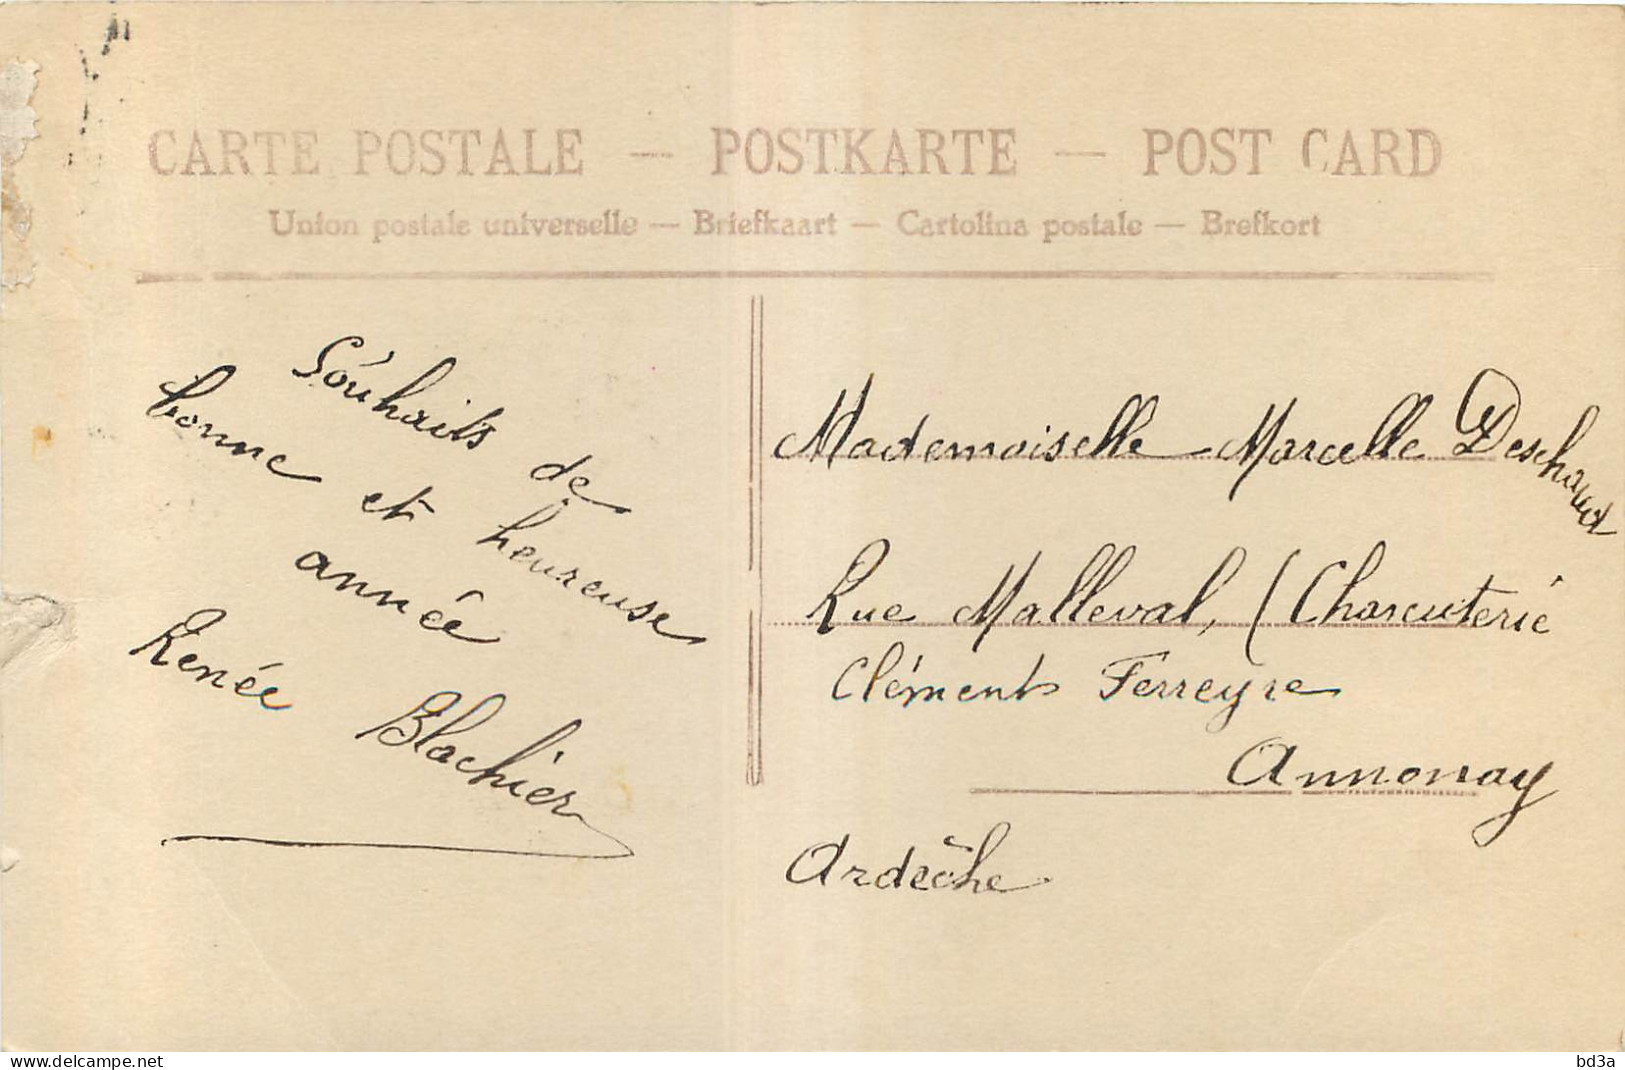 CARTE POSTALE — POSTKARTE — POST CARD
Union postale universelle — Briefkaart — Cartolina postale — Brefkort
Souhaits de
bonne et heureuse
année
Renée Blachier
Mademoiselle Marcelle Deschaud
Rue Malleval, (Charcuterie
Clément Ferreyre
Annonay
Ardèche
www.delcampe.net
bd3a